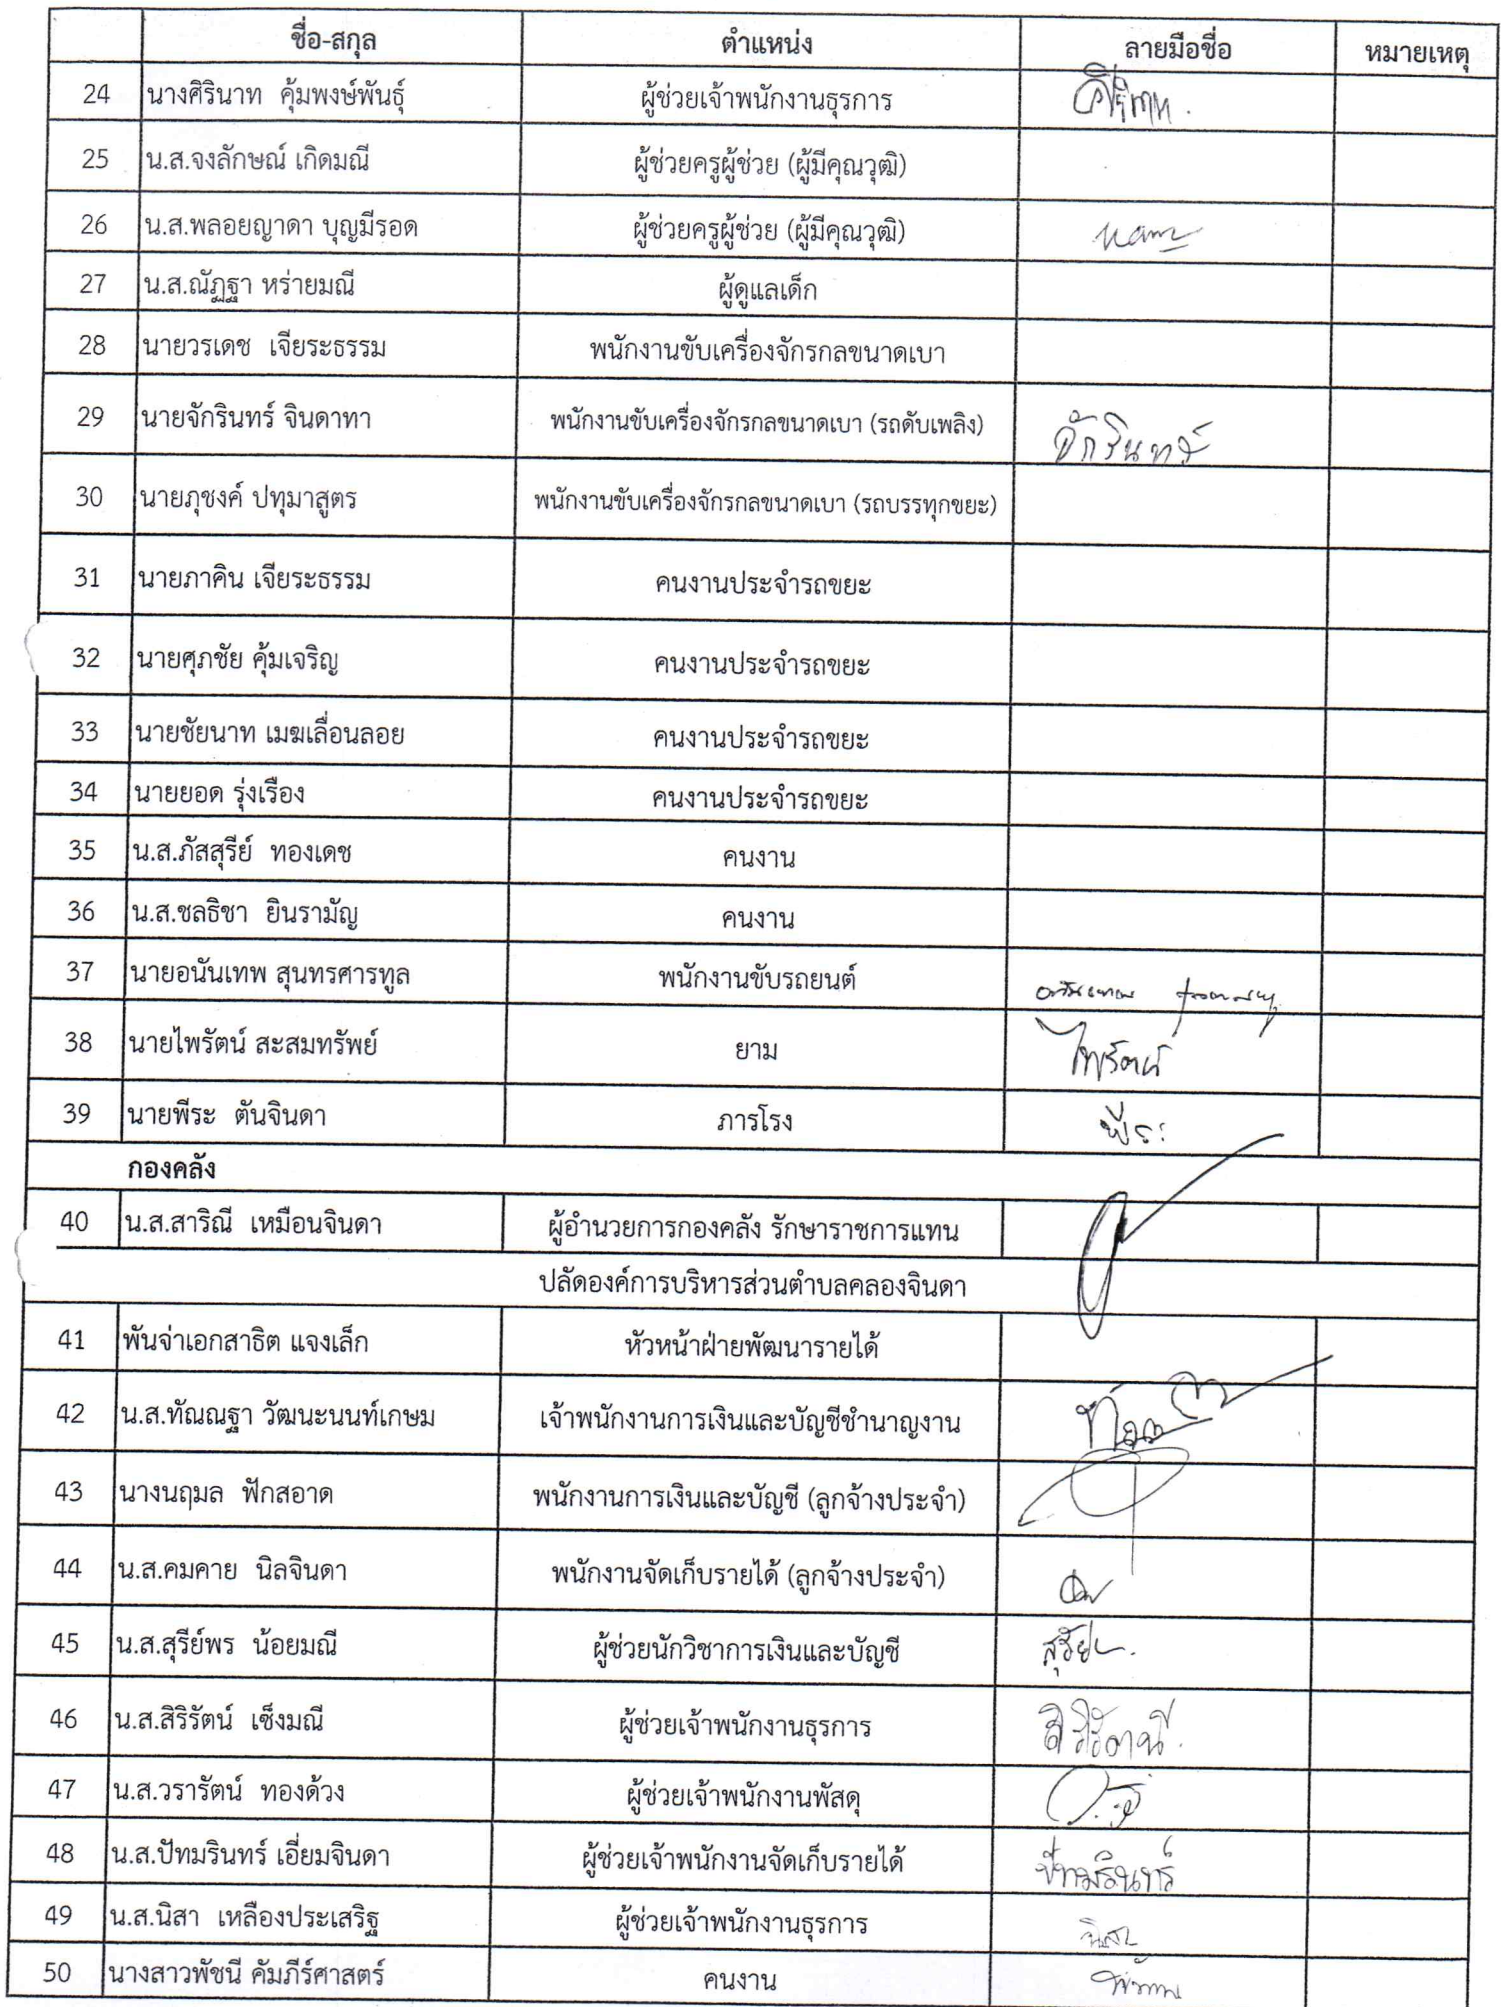 ชื่อ-สกุล ตำแหน่ง ลายมือชื่อ หมายเหตุ
24 นางศิรินาท คุ้มพงษ์พันธุ์ ผู้ช่วยเจ้าพนักงานธุรการ
25 น.ส.จงลักษณ์ เกิดมณี ผู้ช่วยครูผู้ช่วย (ผู้มีคุณวุฒิ)
26 น.ส.พลอยญาดา บุญมีรอด ผู้ช่วยครูผู้ช่วย (ผู้มีคุณวุฒิ)
27 น.ส.ณัฏฐา หร่ายมณี ผู้ดูแลเด็ก
28 นายวรเดช เจียระธรรม พนักงานขับเครื่องจักรกลขนาดเบา
29 นายจักรินทร์ จินดาทา พนักงานขับเครื่องจักรกลขนาดเบา (รถดับเพลิง) จักรินทร์
30 นายภุชงค์ ปทุมาสูตร พนักงานขับเครื่องจักรกลขนาดเบา (รถบรรทุกขยะ)
31 นายภาคิน เจียระธรรม คนงานประจำรถขยะ
32 นายศุภชัย คุ้มเจริญ คนงานประจำรถขยะ
33 นายชัยนาท เมฆเลื่อนลอย คนงานประจำรถขยะ
34 นายยอด รุ่งเรือง คนงานประจำรถขยะ
35 น.ส.ภัสสุรีย์ ทองเดช คนงาน
36 น.ส.ชลธิชา ยินรามัญ คนงาน
37 นายอนันเทพ สุนทรศารทูล พนักงานขับรถยนต์
38 นายไพรัตน์ สะสมทรัพย์ ยาม ไพรัตน์
39 นายพีระ ตันจินดา ภารโรง พีระ
กองคลัง
40 น.ส.สาริณี เหมือนจินดา ผู้อำนวยการกองคลัง รักษาราชการแทน
ปลัดองค์การบริหารส่วนตำบลคลองจินดา
41 พันจ่าเอกสาธิต แจงเล็ก หัวหน้าฝ่ายพัฒนารายได้
42 น.ส.ทัณณฐา วัฒนะนนท์เกษม เจ้าพนักงานการเงินและบัญชีชำนาญงาน
43 นางนฤมล ฟักสอาด พนักงานการเงินและบัญชี (ลูกจ้างประจำ)
44 น.ส.คมคาย นิลจินดา พนักงานจัดเก็บรายได้ (ลูกจ้างประจำ)
45 น.ส.สุรีย์พร น้อยมณี ผู้ช่วยนักวิชาการเงินและบัญชี
46 น.ส.สิริรัตน์ เซ็งมณี ผู้ช่วยเจ้าพนักงานธุรการ
47 น.ส.วรารัตน์ ทองด้วง ผู้ช่วยเจ้าพนักงานพัสดุ
48 น.ส.ปัทมรินทร์ เอี่ยมจินดา ผู้ช่วยเจ้าพนักงานจัดเก็บรายได้ ปัทมรินทร์
49 น.ส.นิสา เหลืองประเสริฐ ผู้ช่วยเจ้าพนักงานธุรการ นิสา
50 นางสาวพัชนี คัมภีร์ศาสตร์ คนงาน